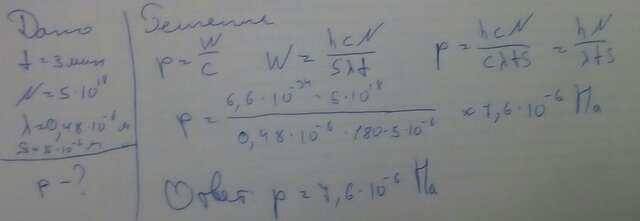 Дано
t = 3 мин
N = 5·10¹⁸
λ = 0,48·10⁻⁶ м
S = 5·10⁻⁶ м
p - ?
Решение
p = W/c    W = hcN/Sλt    p = hcN/cλtS = hN/λtS
p = 6,6·10⁻³⁴·5·10¹⁸ / 0,48·10⁻⁶·180·5·10⁻⁶ ≈ 7,6·10⁻⁶ Па
Ответ p = 7,6·10⁻⁶ Па